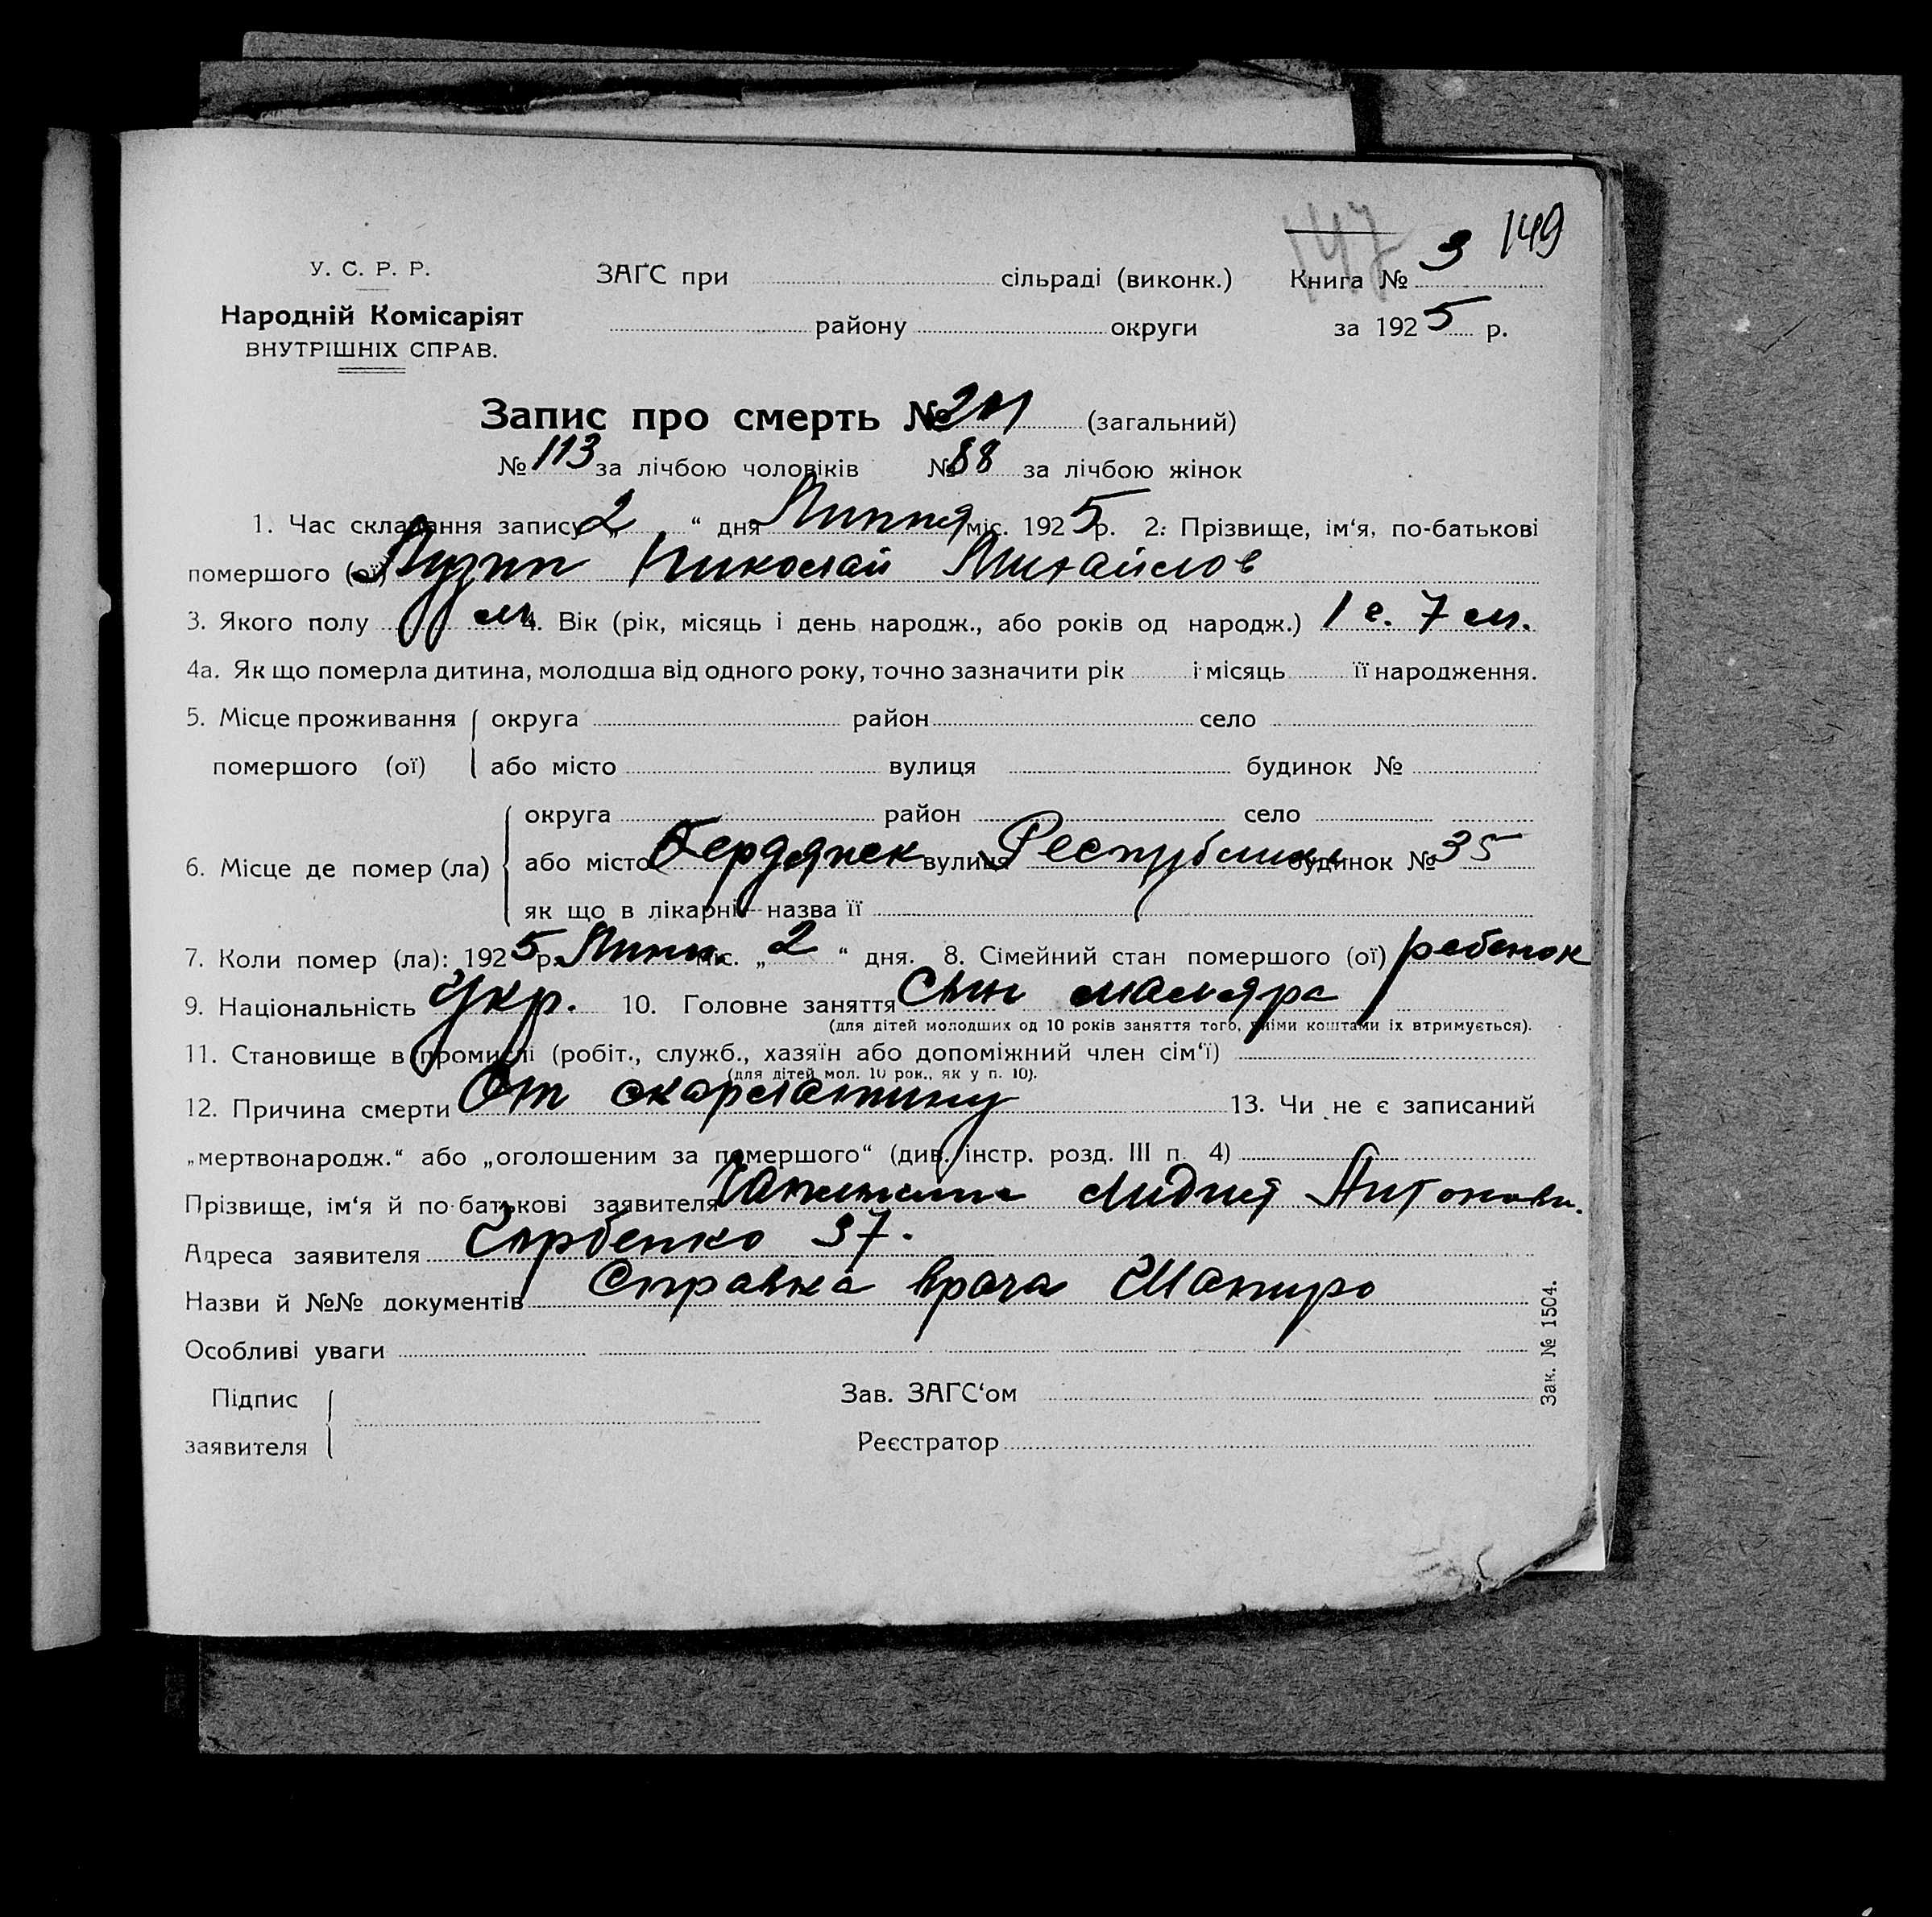 147 149
У. С. Р. Р. ЗАГС при сільраді (виконк.) Книга № 3
Народній Комісаріят
району округи за 1925 р.
ВНУТРІШНІХ СПРАВ.
Запис про смерть № 201 (загальний)
№ 113 за лічбою чоловіків № 88 за лічбою жінок
1. Час складання запису „2“ дня Липня міс. 1925 р. 2. Прізвище, ім‘я, по-батькові
помершого (ої) Николай Михайлов
3. Якого полу м 4. Вік (рік, місяць і день народж., або років од народж.) 1 г. 7 м.
4а. Як що померла дитина, молодша від одного року, точно зазначити рік і місяць її народження.
5. Місце проживання округа район село
помершого (ої) або місто вулиця будинок №
округа район село
6. Місце де помер (ла) або місто Бердянск вулиця Республики будинок № 35
як що в лікарні назва її
7. Коли помер (ла): 1925 р. Липн. міс. „2“ дня. 8. Сімейний стан помершого (ої) ребенок
9. Національність Укр. 10. Головне заняття Сын маляра
(для дітей молодших од 10 років заняття того, чиїми коштами їх втримується).
11. Становище в промислі (робіт., служб., хазяїн або допоміжний член сім‘ї)
(для дітей мол. 10 рок., як у п. 10).
12. Причина смерти От скарлатины 13. Чи не є записаний
„мертвонародж.“ або „оголошеним за помершого“ (див. інстр. розд. III п. 4)
Прізвище, ім‘я й по-батькові заявителя Лидия Антоновн.
Адреса заявителя 37.
Назви й №№ документів Справка врача Шапиро
Особливі уваги
Підпис Зав. ЗАГС‘ом
заявителя Реєстратор
Зак. № 1504.